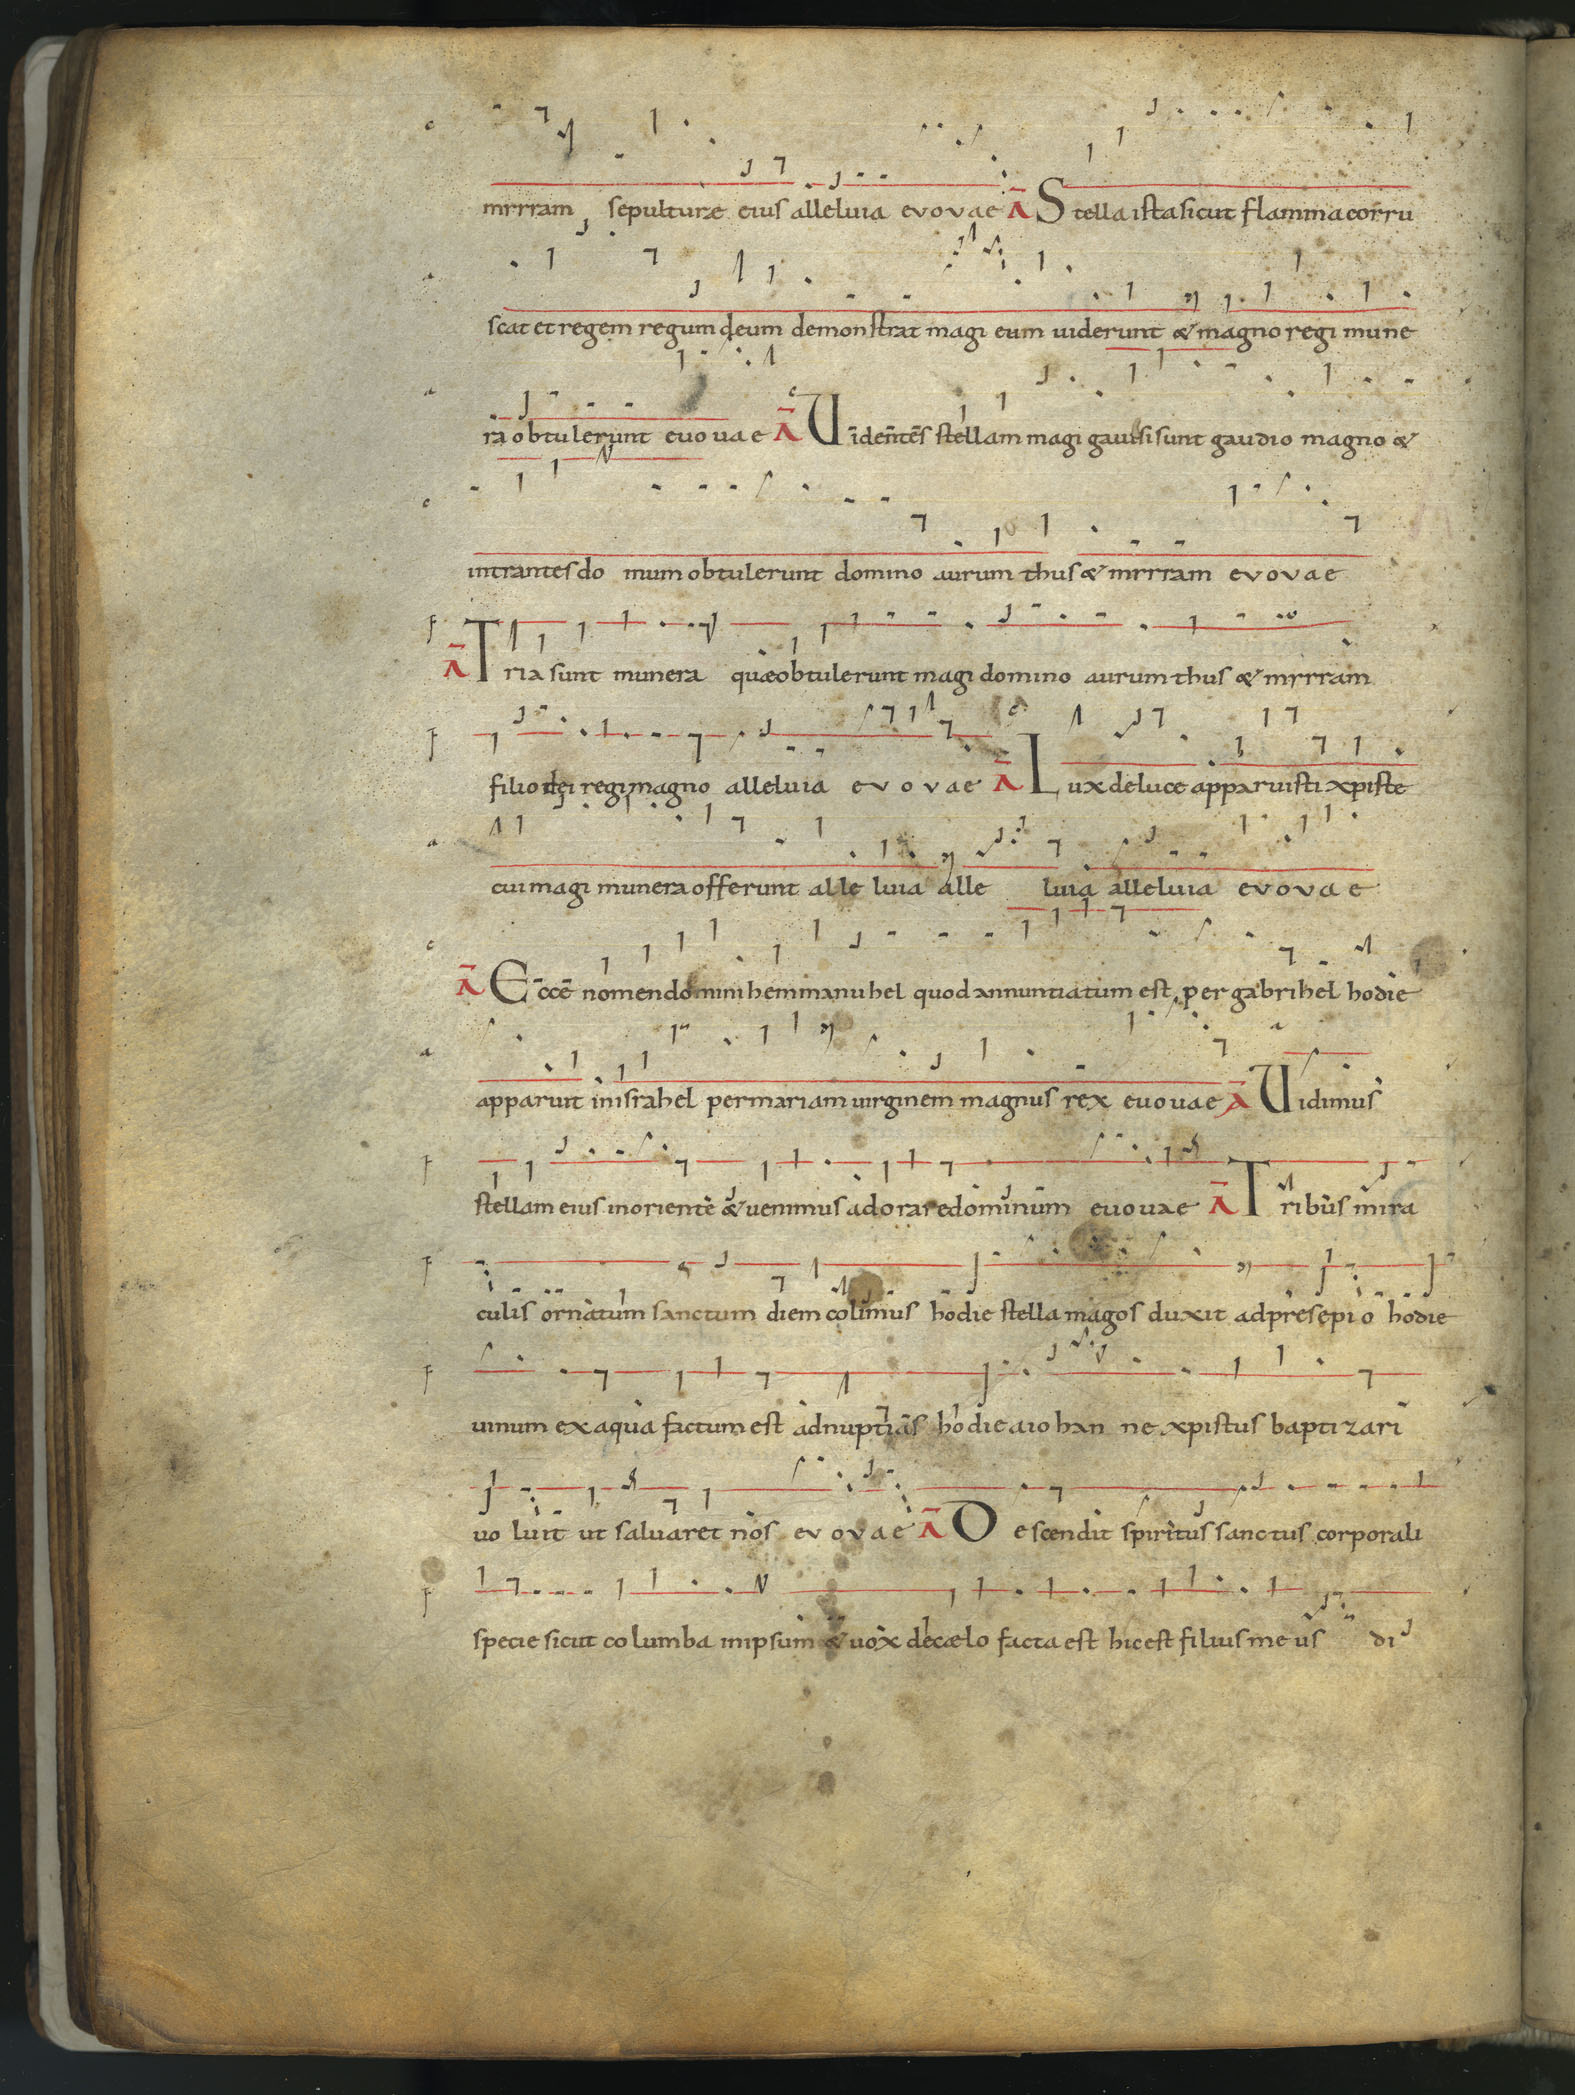 c mrrram sepulturæ eius alleluia evovae A Stella ista sicut flamma corru
a scat et regem regum deum demonstrat magi eum uiderunt & magno regi mune
a ra obtulerunt euouae A Uidentes stellam magi gauisi sunt gaudio magno &
c intrantes domum obtulerunt domino aurum thus & mrrram evovae
f A Tria sunt munera quæ obtulerunt magi domino aurum thus & mrrram
f filio dei regi magno alleluia evovae A Lux de luce apparuisti xpiste
a cui magi munera offerunt alleluia alleluia alleluia evovae
c A Ecce nomen domini hemmanuhel quod annuntiatum est per gabrihel hodie
a apparuit in israhel per mariam uirginem magnus rex euouae A Uidimus
f stellam eius in oriente & uenimus adorare dominum euouae A Tribus mira
f culis ornatum sanctum diem colimus hodie stella magos duxit ad presepio hodie
f uinum ex aqua factum est ad nuptias hodie a iohanne xpistus baptizari
uoluit ut saluaret nos evovae A Descendit spiritus sanctus corporali
f specie sicut columba in ipsum & uox de cælo facta est hic est filius meus di